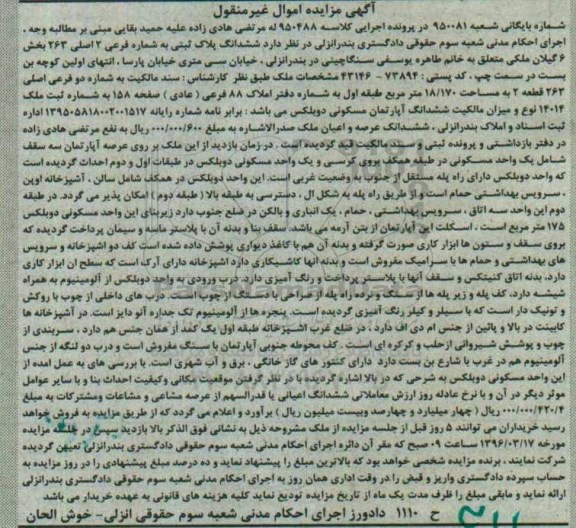 آگهی مزایده اموال غیرمنقول
شماره بایگانی شعبه ۹۵۰۰۸۱ در پرونده اجرایی کلاسه ۹۵۰۴۸۸ له مرتضی هادی زاده علیه حمید بقایی مبنی بر مطالبه وجه ،
اجرای احکام مدنی شعبه سوم حقوقی دادگستری بندرانزلی در نظر دارد ششدانگ پلاک ثبتی به شماره فرعی ۲ اصلی ۲۶۳ بخش
۶ گیلان ملکی متعلق به خانم طاهره یوسفی سنگاچینی در بندرانزلی ، خیابان سی متری خیابان پارسا ، انتهای اولین کوچه بن
بست در سمت چپ ، کد پستی : ۷۳۸۹۴ - ۴۳۱۴۶ مشخصات ملک طبق نظر کارشناس : سند مالکیت به شماره دو فرعی اصلی
۲۶۳ قطعه ۲ به مساحت ۱۸/۱۷۰ متر مربع طبقه اول به شماره دفتر املاک ۸۸ فرعی ( عادی ) صفحه ۱۵۸ به شماره ثبت ملک
۱۴۰۱۴ نوع و میزان مالکیت ششدانگ آپارتمان مسکونی دوبلکس می باشد : برابر نامه شماره رایانه ۱۳۹۵۰۵۸۱۸۰۰۲۰۰۱۵۱۷ اداره
ثبت اسناد و املاک بندرانزلی ، ششدانگ عرصه و اعیان ملک صدرالاشاره به مبلغ ۶۰۰/۰۰۰/۰۰۰ ریال به نفع مرتضی هادی زاده
در دفتر بازداشتی و پرونده ثبتی و سند مالکیت قید گردیده است . در زمان بازدید از این ملک بر روی عرصه آپارتمان سه سقف
شامل یک واحد مسکونی در طبقه همکف بروی کرسی و یک واحد مسکونی دوبلکس در طبقات اول و دوم احداث گردیده است
که واحد دوبلکس دارای راه پله مستقل از جنوب با وضعیت غربی است. این واحد دوبلکس در همکف شامل سالن ، آشپزخانه اوپن
، سرویس بهداشتی حمام است، و از طریق راه پله به شکل ال ، دسترسی به طبقه بالا ( طبقه دوم ) امکان پذیر می گردد. در طبقه
دوم این واحد سه اتاق ، سرویس بهداشتی ، حمام ، یک انباری و بالکن در ضلع جنوب دارد زیربنای این واحد مسکونی دوبلکس
۱۷۵ متر مربع است . اسکلت این آپارتمان از بتن آرمه می باشد. سقف بنا و بدنه آن با پلاستر ماسه و سیمان پرداخت گردیده که
بروی سقف و ستون ها ابزار کاری صورت گرفته و بدنه آن هم با کاغذ دیواری پوشش داده شده است کف دو اشپزخانه و سرویس
های بهداشتی و حمام ها با سرامیک مفروش است و بدنه آنها کاشیکاری دارد اشپزخانه دارای آرک است که سطح ان ابزار کاری
دارد. بدنه اتاق کنیتکس و سقف آنها با پلاستر پرداخت و رنگ آمیزی دارد. درب ورودی به واحد دوبلکس از آلومینیوم به همراه
شیشه دارد. کف پله و زیر پله ها از سنگ و نرده راه پله از صراحی با دستک از چوب است. درب های داخلی از چوب با روکش
و تونیک دار است که با سیلر و کیلر رنگ آمیزی گردیده است. پنجره ها از آلومینیوم تک جداره آلو دایز است. در آشپزخانه ها
کابینت در بالا و پائین از جنس ام دی اف دارد ، در ضلع غرب اشپزخانه طبقه اول یک کمد از همان جنس هم دارد ، سربندی از
چوب و پوشش شیروانی ازحلب و کرکره ای است. کف محوطه جنوبی آپارتمان با سنگ مفروش است و درب دو لنگه از جنس
آلومینیوم هم در غرب با شارع بن بست دارد دارای کنتور های گاز خانگی ، برق و آب شهری است. با بررسی های به عمل امده از
این واحد مسکونی دوبلکس به شرحی که در بالا اشاره گردیده با در نظر گرفتن موقعیت مکانی وکیفیت احداث بنا و با سایر عوامل
موثر دیگر در آن و با نرخ عادله روز ارزش معاملاتی ششدانگ اعیانی با قدرالسهم از عرصه مشاعی و مشاعات ومشترکات به مبلغ
۴۲۰/۴/۰۰۰/۰۰۰ ریال ( چهار میلیارد و چهارصد وبیست میلیون ریال ) برآورد و اعلام می گردد که از طریق مزایده به فروش خواهد
رسید خریداران می توانند ۵ روز قبل از جلسه مزایده از ملک مشروحه ذیل به نشانی فوق الذکر بالا بازدید سپس در جلسه مزایده
مورخه ۱۳۹۶/۰۳/۱۷ ساعت ۰۹ صبح که مقر آن دائره اجرای احکام مدنی شعبه سوم حقوقی دادگستری بندرانزلی تعیین گردیده
شرکت نمایند ، برنده مزایده شخصی خواهد بود که بالاترین مبلغ را پیشنهاد نماید و ده درصد مبلغ پیشنهادی را در روز مزایده به
حساب سپرده دادگستری واریز و قبض را در وقت اداری همان روز به اجرای احکام مدنی شعبه سوم حقوقی دادگستری بندرانزلی
ارائه نماید و مابقی مبلغ را ظرف مدت یک ماه از تاریخ مزایده تودیع نماید کلیه هزینه های قانونی به عهده خریدار می باشد
ح ۱۱۱۰ دادورز اجرای احکام مدنی شعبه سوم حقوقی انزلی- خوش الحان